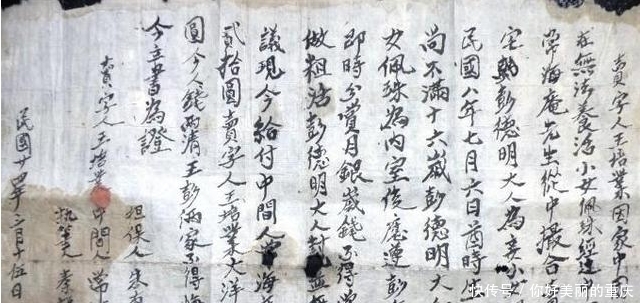 賣字人王培業因家中
在無法養活小女佩珠經
常海庵先生從中撮合
宅與彭德明大人為妾小
民國八年七月六日酉時
尚不滿十六歲彭德明
女佩珠為內室後應遵彭
即時分賞月銀歲錢不得
做粗活彭德明大人封
議現今給付中間人常海
貳拾圓賣字人王培業大洋
圓今人錢兩清王彭兩家不得
今立書為證
賣字人王培業
中間人常
担保人朱
執筆人李
民國廿四年三月十五日
快传号/你好美丽的重庆